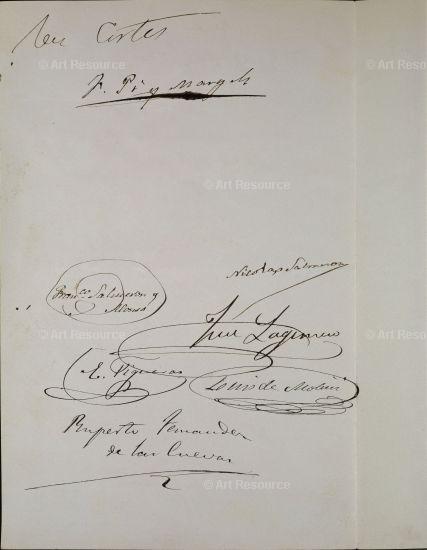 las Cortes
F. Pi y Margall
Nicolas Salmeron
Fran.co Salmeron y
Alonso
José
E. Figueras
Louis de Molini
Ruperto Fernandez
de las Cuevas
© Art Resource
© Art Resource
© Art Resource
© Art Resource
© Art Resource
© Art Resource
© Art Resource
© Art Resource